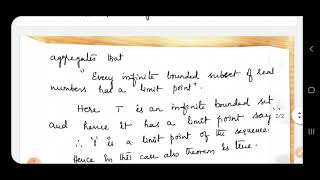 aggregates that
"Every infinite bounded subset of real
numbers has a limit point".
Here T is an infinite bounded set
and hence it has a limit point say
2/2
∴ 'i' is a limit point of the sequence
Hence in this case also theorem is true.